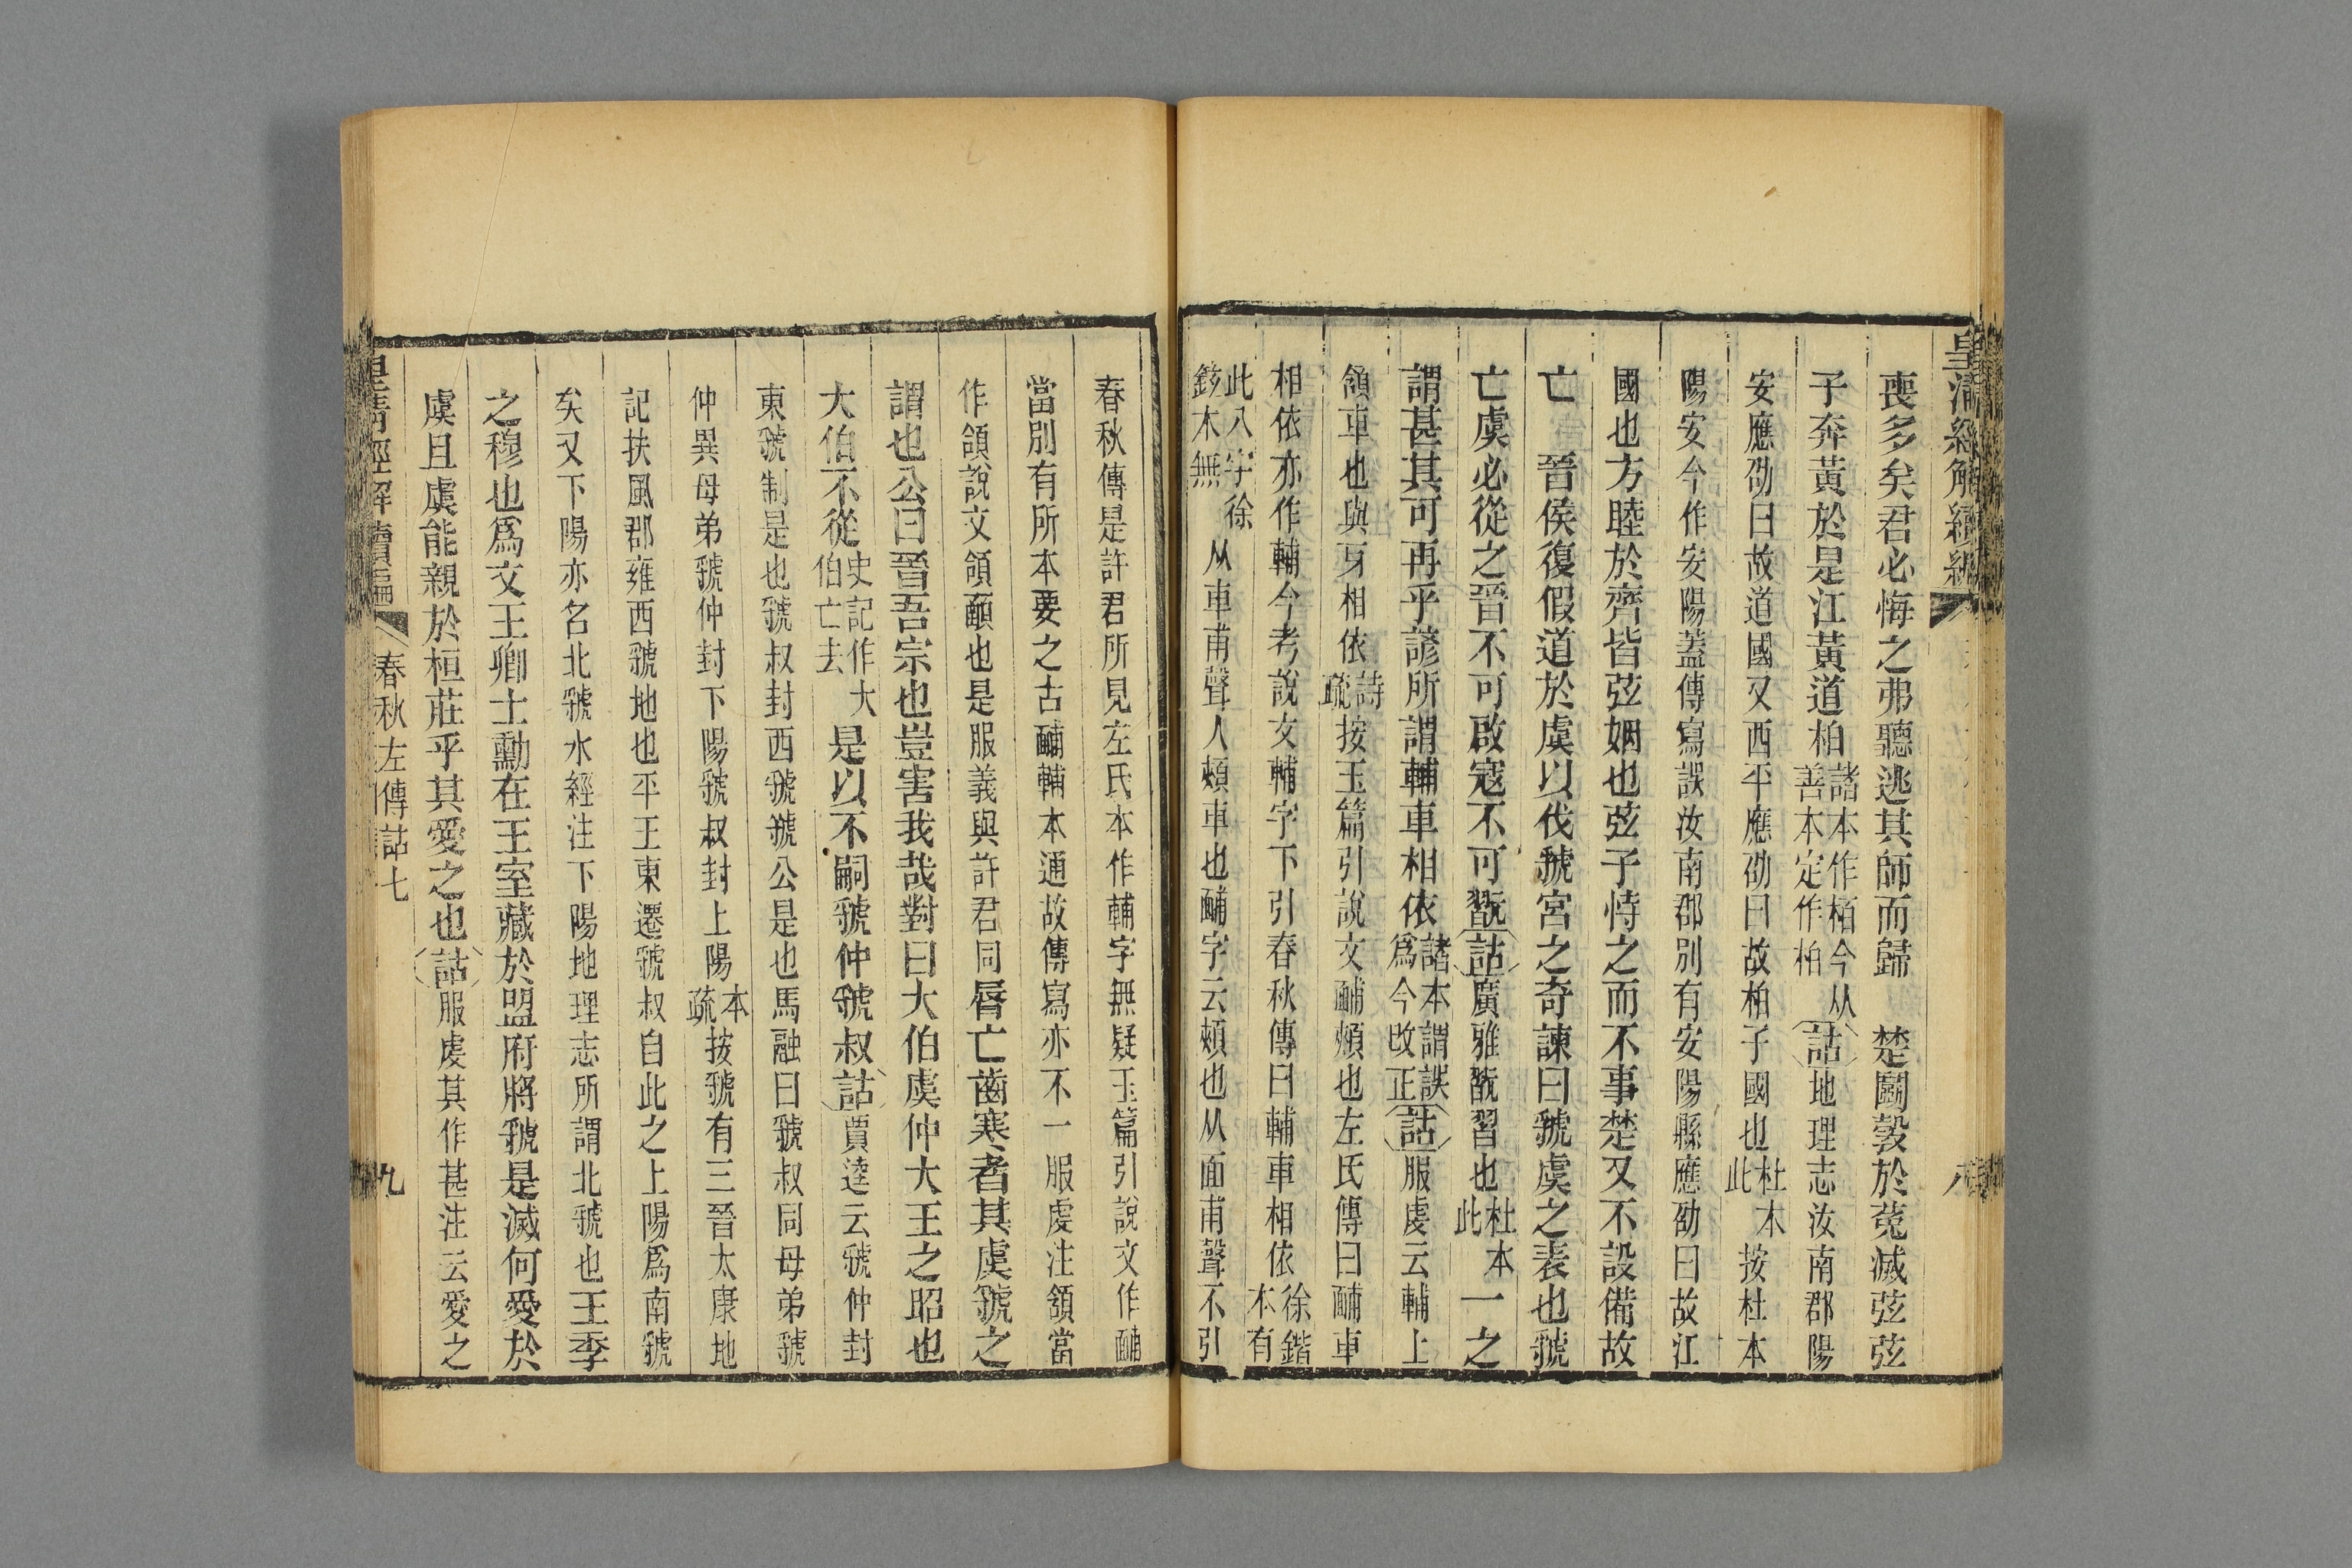 皇清經解續編
八
喪多矣君必悔之弗聽逃其師而歸　楚鬭㝅於菟滅弦弦
子奔黃於是江黃道柏諸本作栢今从善本定作柏詁地理志汝南郡陽
安應劭曰故道國又西平應劭曰故柏子國也杜本此按杜本
陽安今作安陽蓋傳寫誤汝南郡別有安陽縣應劭曰故江
國也方睦於齊皆弦姻也弦子恃之而不事楚又不設備故
亡　晉侯復假道於虞以伐虢宮之奇諫曰虢虞之表也虢
亡虞必從之晉不可啟寇不可翫詁廣雅翫習也杜本此一之
謂甚其可再乎諺所謂輔車相依諸本謂誤爲今改正詁服虔云輔上
頷車也與牙相依詩疏按玉篇引說文䩉頰也左氏傳曰䩉車
相依亦作輔今考說文輔字下引春秋傳曰輔車相依徐鍇本有
此八字徐鉉木無从車甫聲人頰車也䩉字云頰也从面甫聲不引
春秋傳是許君所見左氏本作輔字無疑玉篇引說文作䩉
當別有所本要之古䩉輔本通故傳寫亦不一服虔注頷當
作頜說文頜顄也是服義與許君同脣亡齒寒者其虞虢之
謂也公曰晉吾宗也豈害我哉對曰大伯虞仲大王之昭也
大伯不從史記作大伯亡去是以不嗣虢仲虢叔詁賈逵云虢仲封
東虢制是也虢叔封西虢虢公是也馬融曰虢叔同母弟虢
仲異母弟虢仲封下陽虢叔封上陽本疏按虢有三晉太康地
記扶風郡雍西虢地也平王東遷虢叔自此之上陽爲南虢
矣又下陽亦名北虢水經注下陽地理志所謂北虢也王季
之穆也爲文王卿士勳在王室藏於盟府將虢是滅何愛於
虞且虞能親於桓莊乎其愛之也詁服虔其作甚注云愛之
皇清經解續編
春秋左傳詁七
九